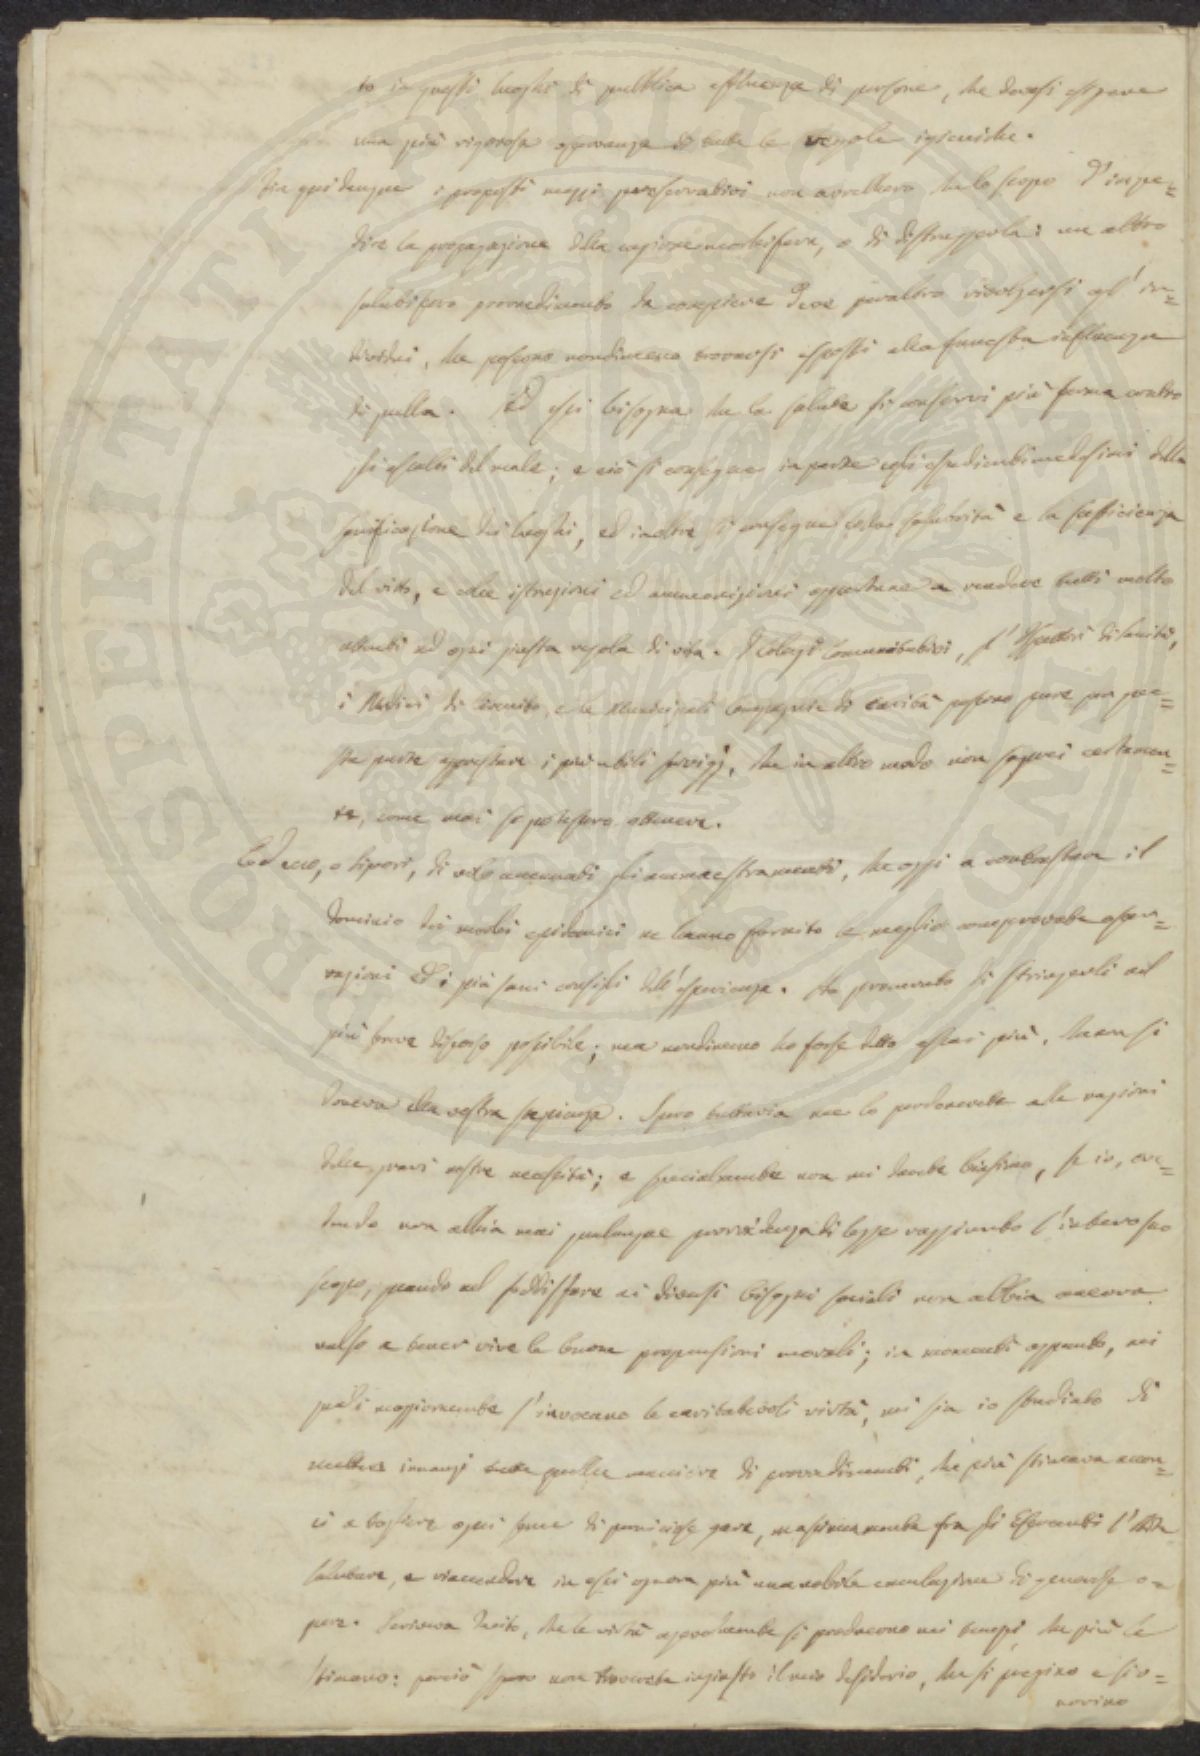 to in questi luoghi di pubblica affluenza di persone, che dovesi esigere
una più rigorosa osservanza di tutte le regole igieniche.
Sin qui dunque i proposti mezzi preservativi non avrebbero che lo scopo d'impe=
dire la propagazione della cagione morbifera, o di distruggerla: un altro
salutifero provvedimento da compiere deve peraltro rivolgersi agl'in=
dividui, che possono nondimeno trovarsi esposti alla funesta influenza
di quella. Ad essi bisogna che la salute si conservi più ferma contro
gli assalti del male; e ciò si consegue in parte cogli espedienti medesimi della
purificazione dei luoghi, ed inoltre si consegue colla salubrità e la sufficienza
del vitto, e colle istruzioni ed ammonizioni opportune a rendere tutti molto
attenti ad ogni giusta regola di vita. I Collegi Comunitativi, gl'Ispettori di Sanità,
i Medici di Circuito, e le Municipali Compagnie di carità possono pure per que=
sta parte apprestare i più utili servigj, che in altro modo non saprei certamen=
te, come mai si potessero ottenere.
Ed ecco, o Signori, di volo accennati gli ammaestramenti, che oggi a contrastare il
dominio dei morbi epidemici ne hanno fornito le meglio comprovate osser=
vazioni ed i più sani consigli dell'esperienza. Ho procurato di stringerli nel
più breve discorso possibile; ma nondimeno ho forse detto assai più, che non si
doveva alla vostra sapienza. Spero tuttavia me lo perdonerete alle ragioni
delle gravi nostre necessità; e specialmente non mi darete biasimo, se io, cre=
dendo non abbia mai qualunque provvidenza di legge raggiunto l'intero suo
scopo, quando nel soddisfare ai diversi bisogni sociali non abbia ancora
valso a tener vive le buone propensioni morali; in momenti appunto, nei
quali maggiormente s'invocano le caritatevoli virtù, mi sia io studiato di
mettere innanzi tutte quelle maniere di provvedimenti, che più stimava accon=
ci a togliere ogni seme di perniciose gare, massimamente fra gli Esercenti l'Arte
salutare, e riaccendere in essi ognora più una nobile emulazione di generose o=
pere. Scriveva Tacito, che le virtù agevolmente si producono nei tempi, che più le
stimano: perciò spero non troverete ingiusto il mio desiderio, che si pregino e si o=
norino